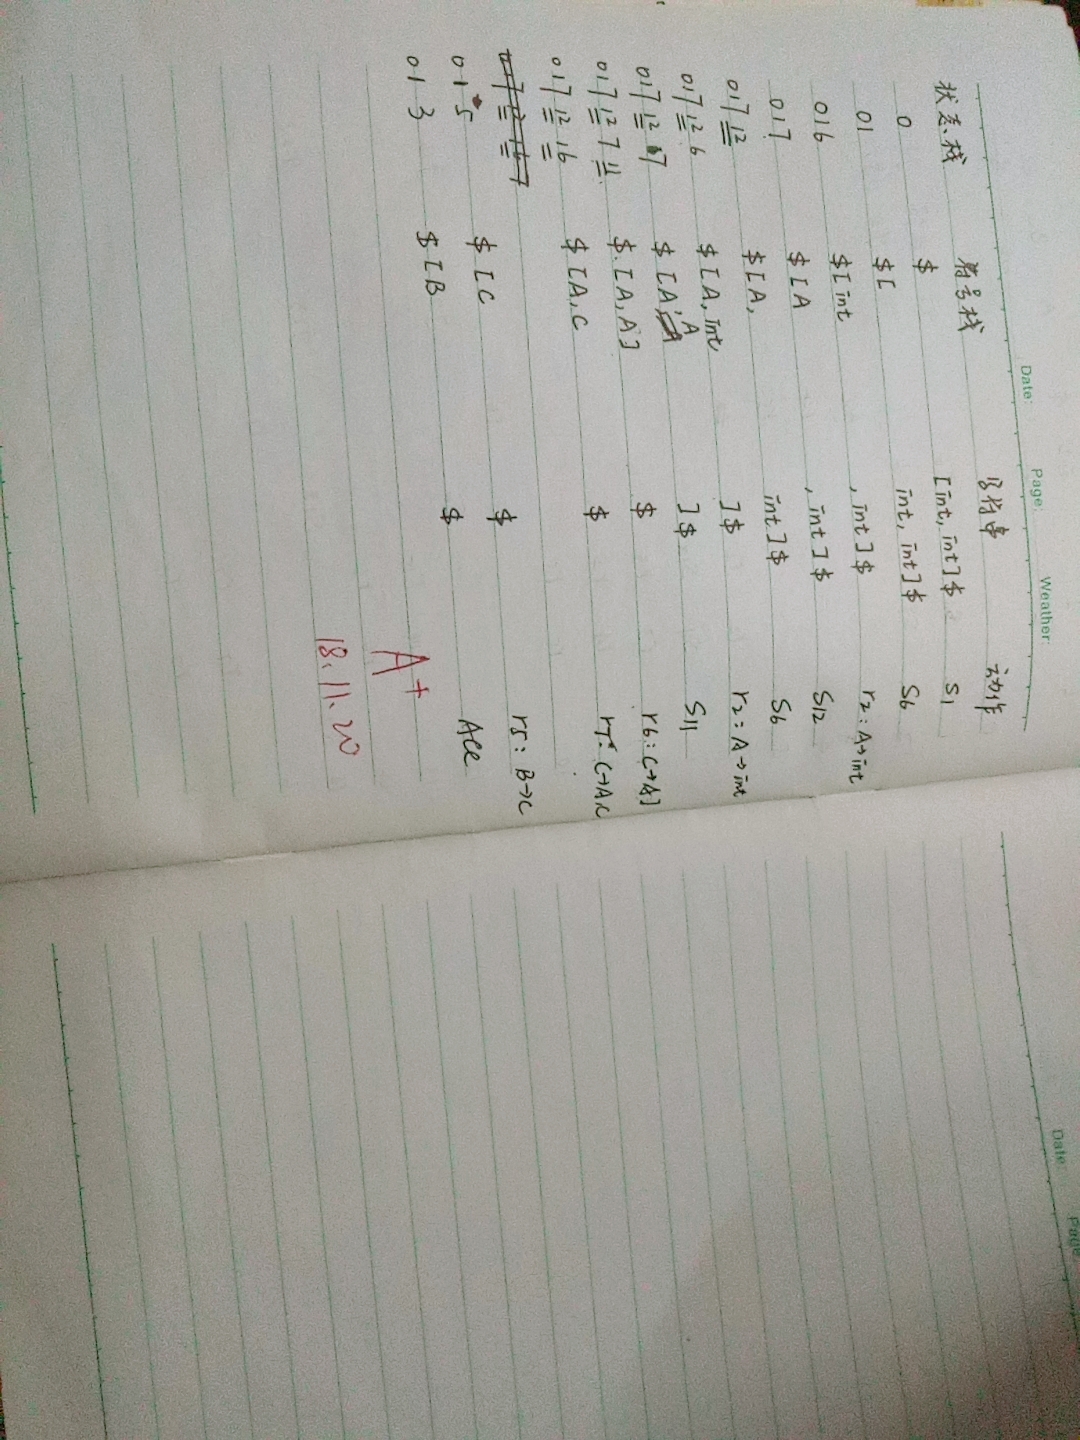 Date: Page: Weather:
Date: Page
状态栈 符号栈 字符串 动作
0 $ [int, int]$ S1
01 $[ int, int]$ S6
016 $[int , int]$ r2: A→int
017 $[A , int]$ S12
017 12 $[A, int]$ S6
017 12 6 $[A, int ]$ r2: A→int
017 12 7 $[A,A ]$ S11
017 12 7 11 $[A,A] $ r6: C→A]
017 12 16 $[A,C $ r7: C→A,C
015 $[C $ r5: B→C
013 $[B $ Acc
A+
18.11.20